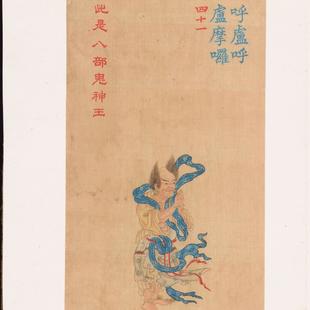 呼盧呼
盧摩囉
四十一
此是八部鬼神王